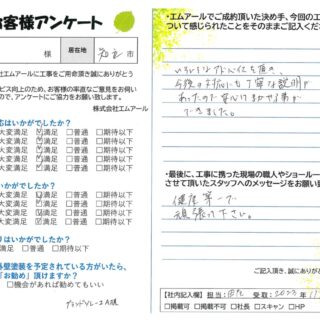 お客様アンケート
様
居在地
市
エムアールに工事をご用命頂き誠にありがとう
ビス向上のため、お客様の率直なご意見をお伺い
ので、アンケートにご協力をお願い致します。
株式会社エムアール
応はいかがでしたか?
大変満足 ☑満足 □普通 □期待以下
大変満足 ☑満足 □普通 □期待以下
大変満足 ☑満足 □普通 □期待以下
大変満足 ☑満足 □普通 □期待以下
りはいかがでしたか?
大変満足 ☑満足 □普通 □期待以下
大変満足 ☑満足 □普通 □期待以下
大変満足 ☑満足 □普通 □期待以下
はいかがでしたか?
満足 □普通 □期待以下
外壁塗装を予定されている方がいたら、
「お勧め」頂けますか?
□機会があれば勧めてもいい
・エムアールでご成約頂いた決め手、今回の工
ついて感じられたことをそのままご記入くださ
いろいろなアドバイスを頂き、
今後の支払いも丁寧な説明が
あったので安心してまかせる事が
できました。
・最後に、工事に携った現場の職人やショールー
させて頂いたスタッフへのメッセージをお願い致
健康第一で
頑張って下さい。
ご記入頂き、誠にありがと
【社内記入欄】担当: 受取: 2023. 11
□掲載可 □掲載不可 □社長 □スキャン □HP